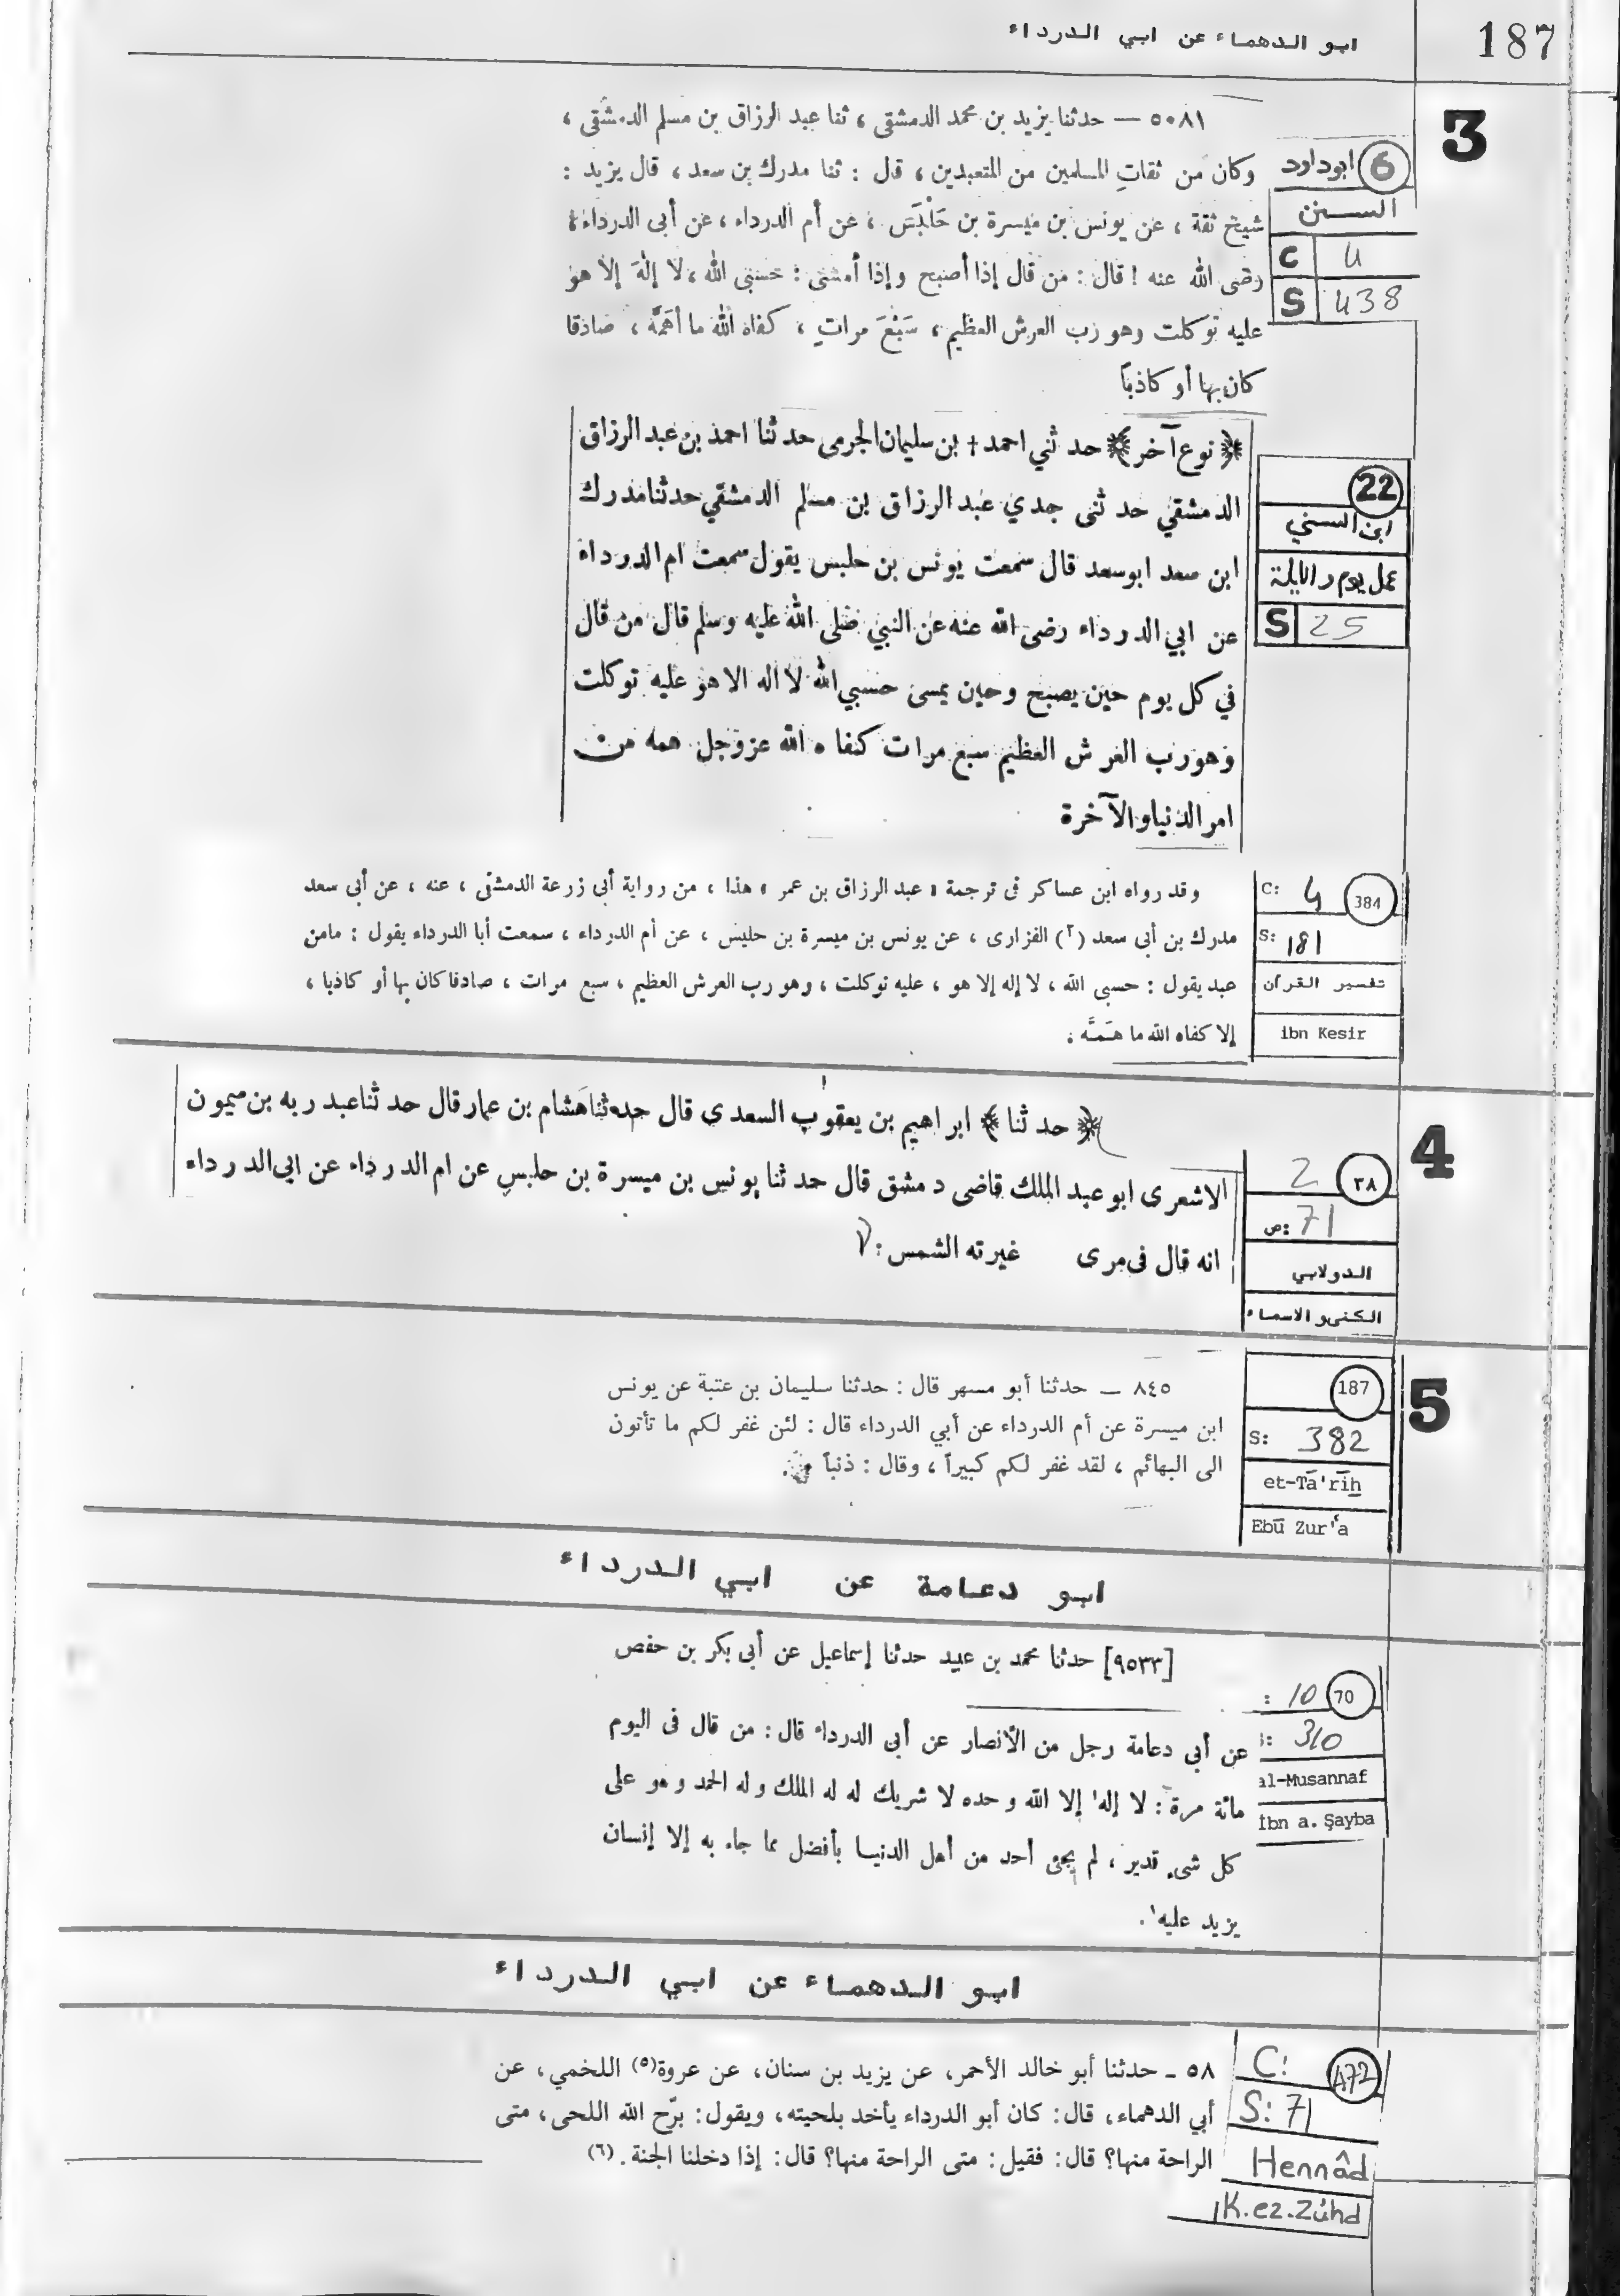 187
ابو الدهماء عن ابي الدرداء
3
٥٠٨١ — حدثنا يزيد بن محمد الدمشقى ، ثنا عبد الرزاق بن مسلم الدمشقى ،
6 ابوداود
وكان من ثقات المسلمين من المتعبدين ، قال : ثنا مدرك بن سعد ، قال يزيد :
السنن
شيخ ثقة ، عن يونس بن ميسرة بن حَلْبَس ، عن أم الدرداء ، عن أبى الدرداء ،
C 4
رضى الله عنه ! قال : من قال إذا أصبح وإذا أمسى : حسبى الله ، لا إلٰهَ إلا هو
S 438
عليه توكلت وهو رب العرش العظيم ، سَبْعَ مراتٍ ، كفاه الله ما أهَمَّهُ ، صادقا
كان بها أو كاذباً
﴿ نوع آخر ﴾ حدثني احمد † بن سليمان الجرمى حدثنا احمد بن عبد الرزاق
22
الدمشقي حدثنى جدي عبد الرزاق بن مسلم الدمشقي حدثنا مدرك
ابن السني
ابن سعد ابوسعد قال سمعت يونس بن حلبس يقول سمعت ام الدرداء
عمل يوم والليلة
عن ابي الدرداء رضى الله عنه عن النبي صلى الله عليه وسلم قال من قال
S 25
في كل يوم حين يصبح وحين يمسى حسبي الله لا اله الا هو عليه توكلت
وهو رب العرش العظيم سبع مرات كفاه الله عزوجل همه من
امر الدنيا والآخرة
وقد رواه ابن عساكر فى ترجمة « عبد الرزاق بن عمر » هذا ، من رواية أبى زرعة الدمشقى ، عنه ، عن أبى سعد
C: 4 384
مدرك بن أبى سعد (٢) الفزارى ، عن يونس بن ميسرة بن حلبس ، عن أم الدرداء ، سمعت أبا الدرداء يقول : مامن
S: 181
عبد يقول : حسبى الله ، لا إله إلا هو ، عليه توكلت ، وهو رب العرش العظيم ، سبع مرات ، صادقا كان بها أو كاذبا ،
تفسير القرآن
إلا كفاه الله ما هَمَّه .
ibn Kesir
4
﴿ حدثنا ﴾ ابراهيم بن يعقوب السعدى قال حدثنا هشام بن عمار قال حدثنا عبد ربه بن ميمون
2 ٣٨
الاشعرى ابو عبد الملك قاضى دمشق قال حدثنا يونس بن ميسرة بن حلبس عن ام الدرداء عن ابى الدرداء
ص: 71
انه قال فى مرى غيرته الشمس :
الدولابي
الكنى و الاسماء
5
٨٤٥ — حدثنا أبو مسهر قال : حدثنا سليمان بن عتبة عن يونس
187
ابن ميسرة عن أم الدرداء عن أبي الدرداء قال : لئن غفر لكم ما تأتون
S: 382
الى البهائم ، لقد غفر لكم كبيراً ، وقال : ذنباً
et-Tā'rīḫ
Ebū Zur'a
ابو دعامة عن ابي الدرداء
[٩٥٣٣] حدثنا محمد بن عبيد حدثنا إسماعيل عن أبى بكر بن حفص
: 10 70
عن أبى دعامة رجل من الأنصار عن أبى الدرداء قال : من قال فى اليوم
: 310
مائة مرة : لا إله إلا الله وحده لا شريك له له الملك وله الحمد وهو على
al-Musannaf
كل شىء قدير ، لم يجئ أحد من أهل الدنيا بأفضل مما جاء به إلا إنسان
İbn a. Şayba
يزيد عليه .
ابو الدهماء عن ابي الدرداء
٥٨ ـ حدثنا أبو خالد الأحمر، عن يزيد بن سنان، عن عروة(٥) اللخمي، عن
C: 472
أبي الدهماء، قال: كان أبو الدرداء يأخذ بلحيته، ويقول: برّح الله اللحى، متى
S: 71
الراحة منها؟ قال: فقيل: متى الراحة منها؟ قال: إذا دخلنا الجنة. (٦)
Hennâd
K.ez.Zühd